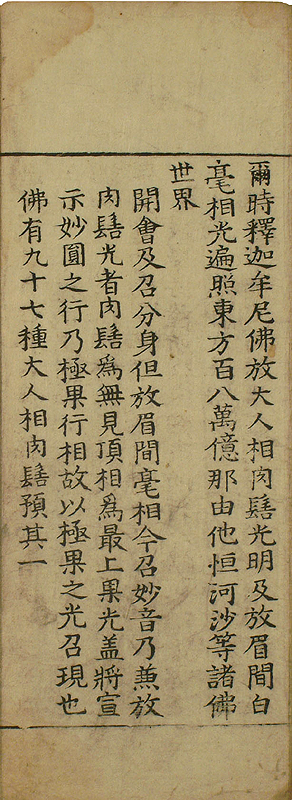 爾時釋迦牟尼佛放大人相肉髻光明及放眉間白
毫相光遍照東方百八萬億那由他恒河沙等諸佛
世界
開會及召分身但放眉間毫相今召妙音乃兼放
肉髻光者肉髻爲無見頂相爲最上果光盖將宣
示妙圓之行乃極果行相故以極果之光召現也
佛有九十七種大人相肉髻預其一